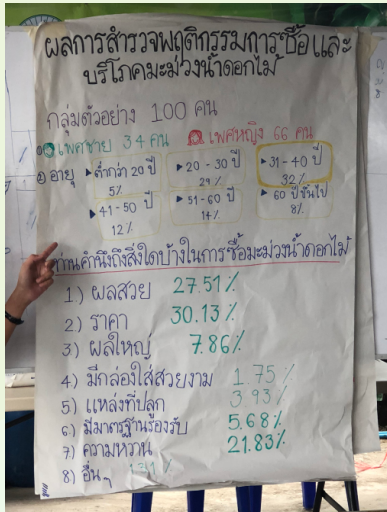 ผลการสำรวจพฤติกรรมการซื้อและ
บริโภคมะม่วงน้ำดอกไม้
กลุ่มตัวอย่าง 100 คน
① เพศชาย 34 คน เพศหญิง 66 คน
② อายุ ▸ต่ำกว่า 20 ปี ▸20 - 30 ปี ▸31 - 40 ปี
5% 29% 32%
▸41-50 ปี ▸51-60 ปี ▸60 ปีขึ้นไป
12% 14% 8%
ท่านคำนึงถึงสิ่งใดบ้างในการซื้อมะม่วงน้ำดอกไม้
1) ผลสวย 27.51%
2) ราคา 30.13%
3) ผลใหญ่ 7.86%
4) มีกล่องใส่สวยงาม 1.75%
5) แหล่งที่ปลูก 3.93%
6) มีมาตรฐานรองรับ 5.68%
7) ความหวาน 21.83%
8) อื่น ๆ 1.31%